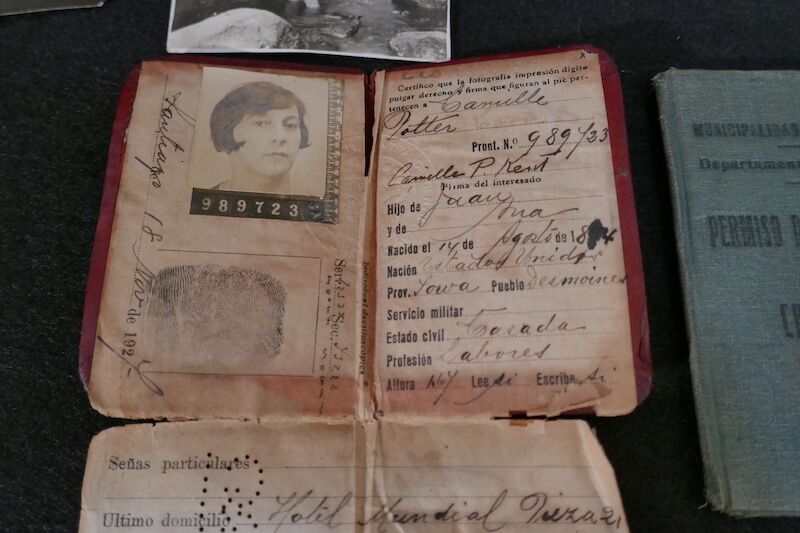 Certifico que la fotografía impresión digito
pulgar derecho y firma que figuran al pié per-
tenecen a Camille
Potter
Pront. N.º 989723
Camille P. Kent
Firma del interesado
Hijo de Juan
y de Ona
Nacido el 14 de Agosto de 18 4
Nación Estados Unidos
Prov. Iowa Pueblo Desmoines
Servicio militar
Estado civil Casada
Profesión Labores
Altura 1.67 Lee si Escribe si
Santiago 18 Nov de 192
989723
Serie Sec.
Individual dactiloscópica
Señas particulares
Ultimo domicilio Hotel Mundial Pieza 21
MUNICIPALIDAD
Departamen
PERMISO